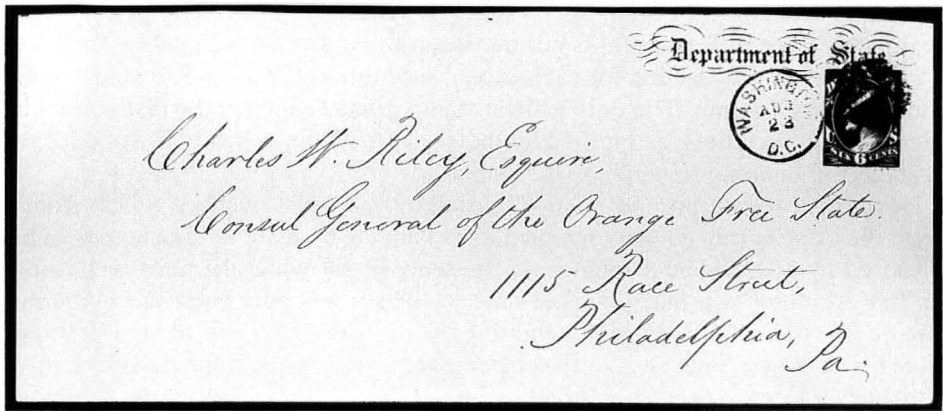 Department of State
WASHINGTON
AUG
23
D.C.
SIX 6 CENTS
Charles W. Riley, Esquire,
Consul General of the Orange Free State.
1115 Race Street,
Philadelphia,
Pa.